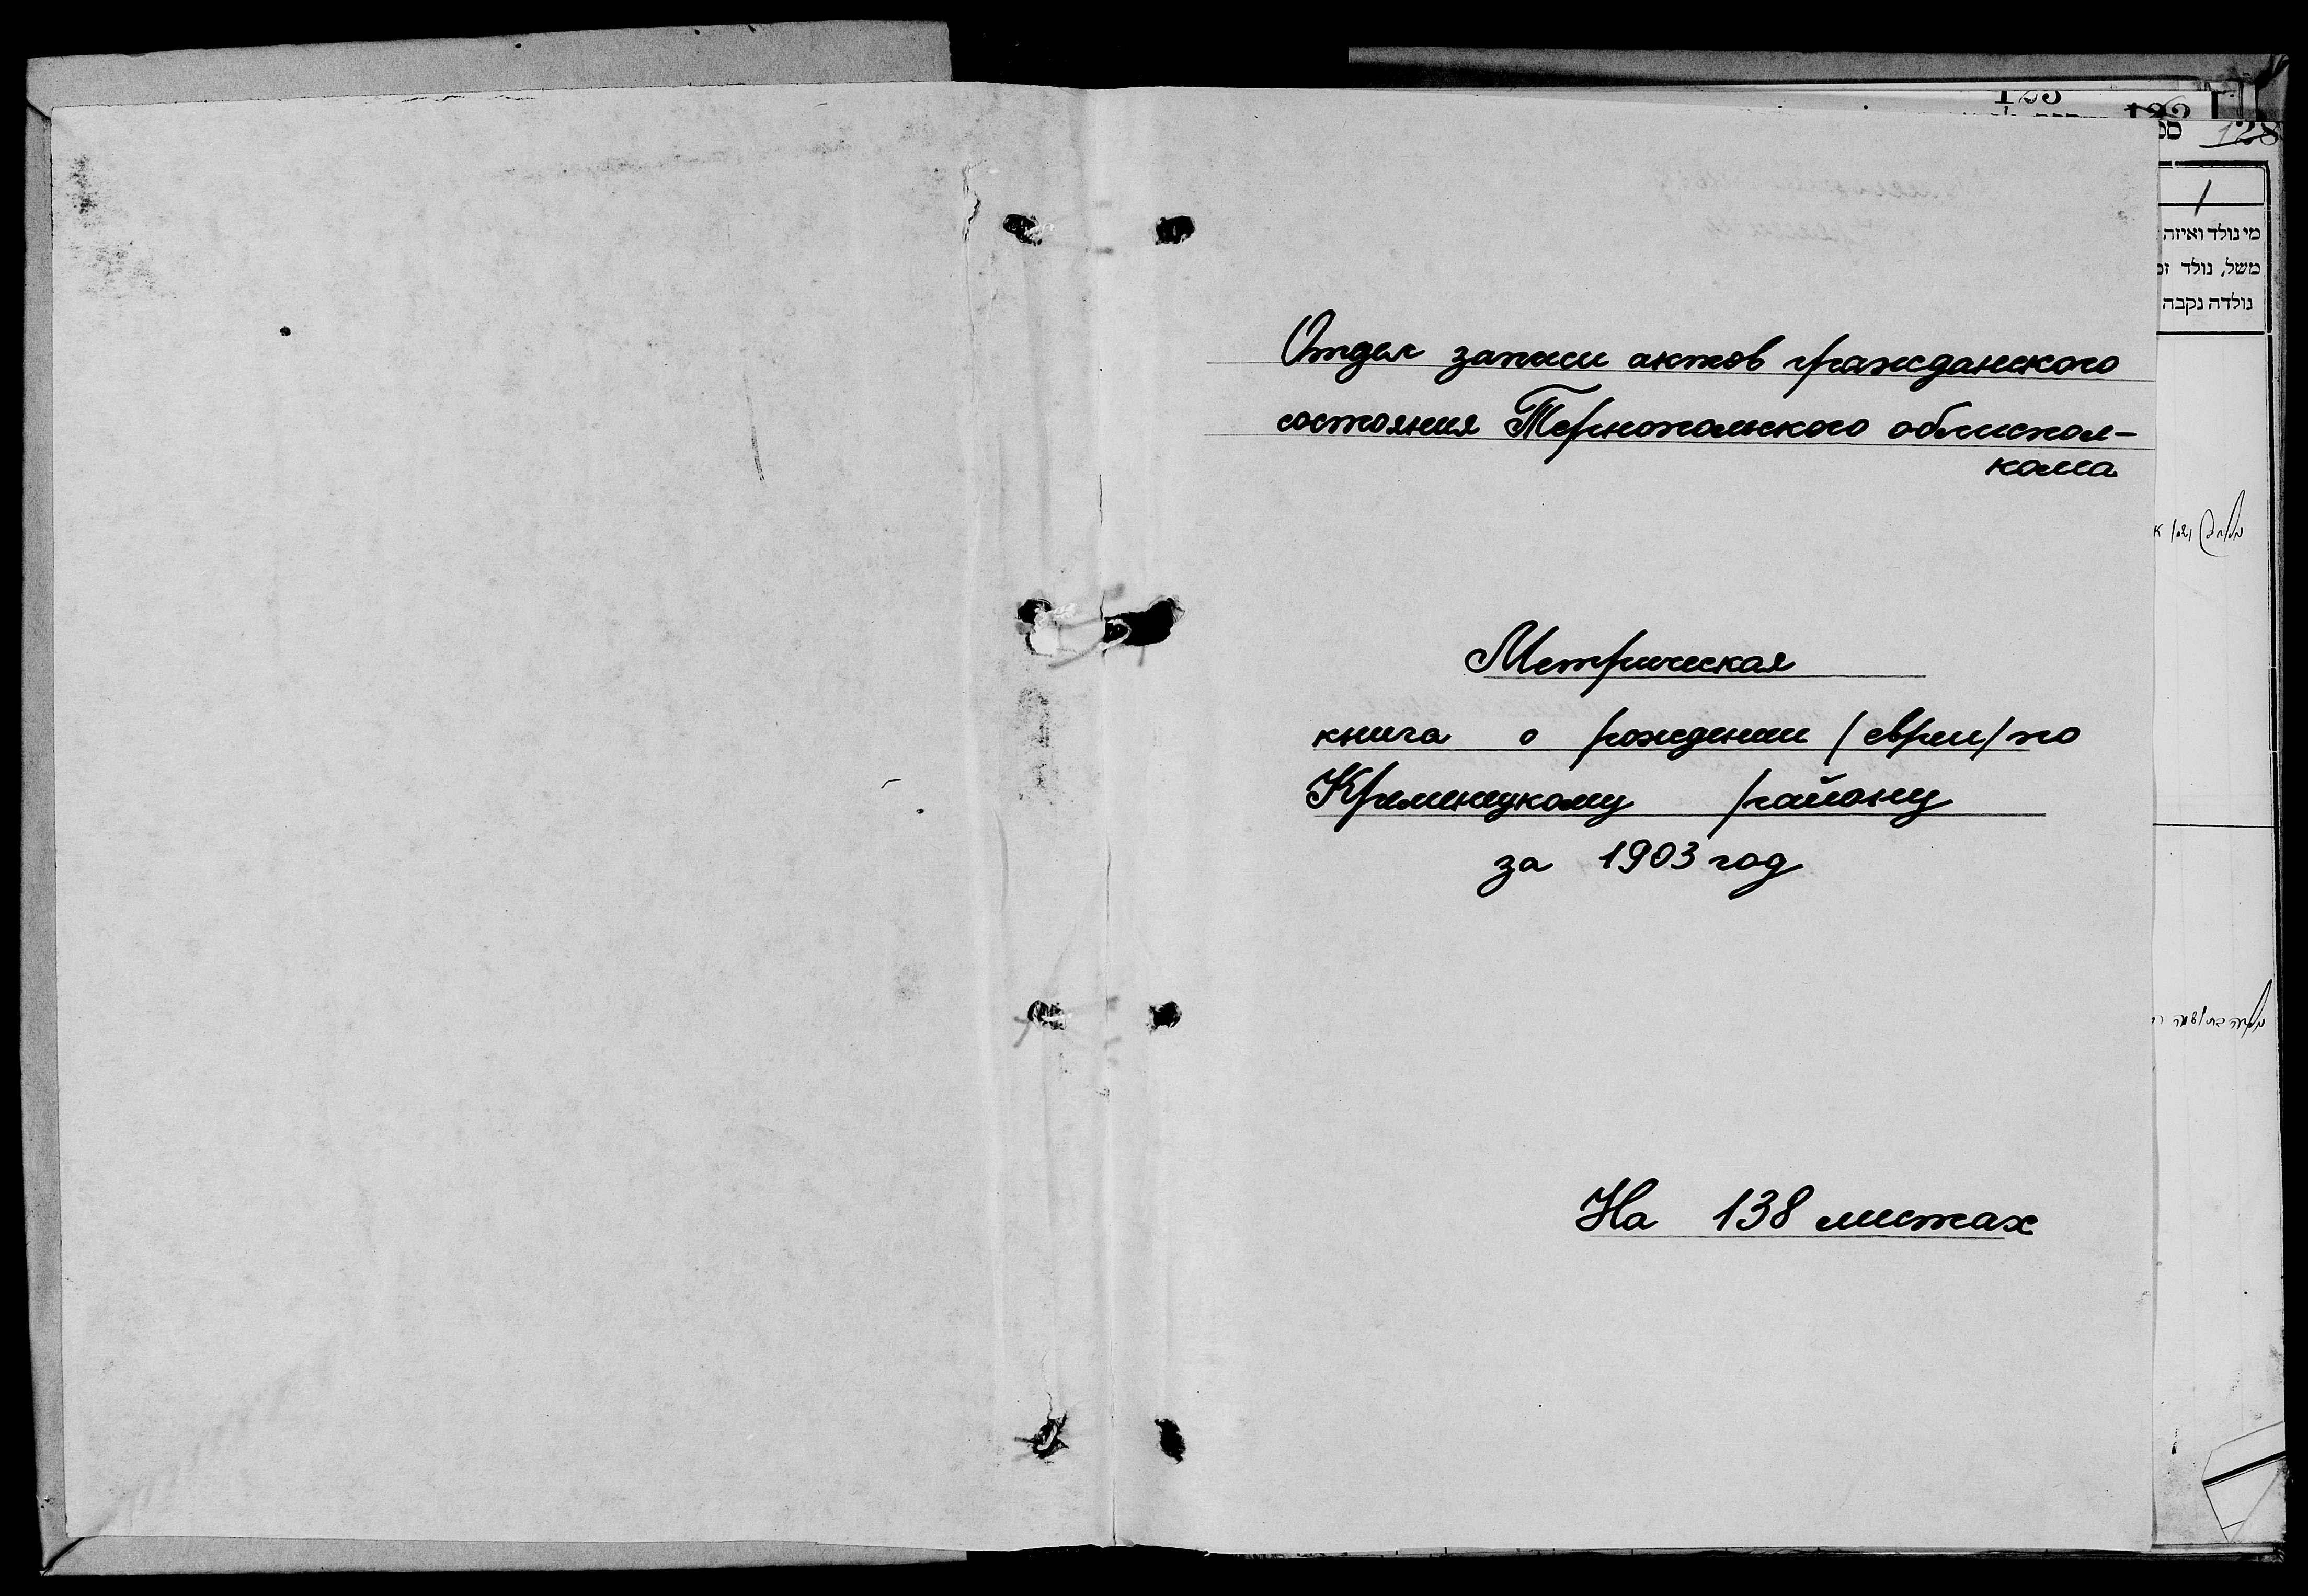 Отдел записи актов гражданского
состояния Тернопольского облиспол-
кома
Метрическая
книга о рождении /евреи/ по
Кременецкому району
за 1903 год
На 138 листах
123
122
128
1
מי נולד ואיזה
משל, נולד זכ
נולדה נקבה